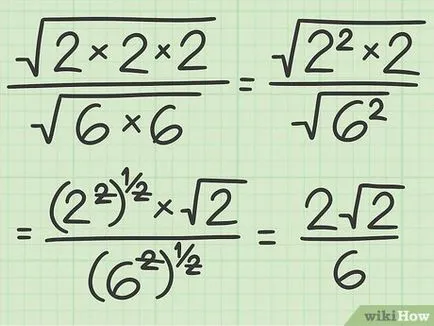 √2 × 2 × 2 / √6 × 6 = √2² × 2 / √6²
= (2²)^1/2 × √2 / (6²)^1/2 = 2√2 / 6
wikiHow